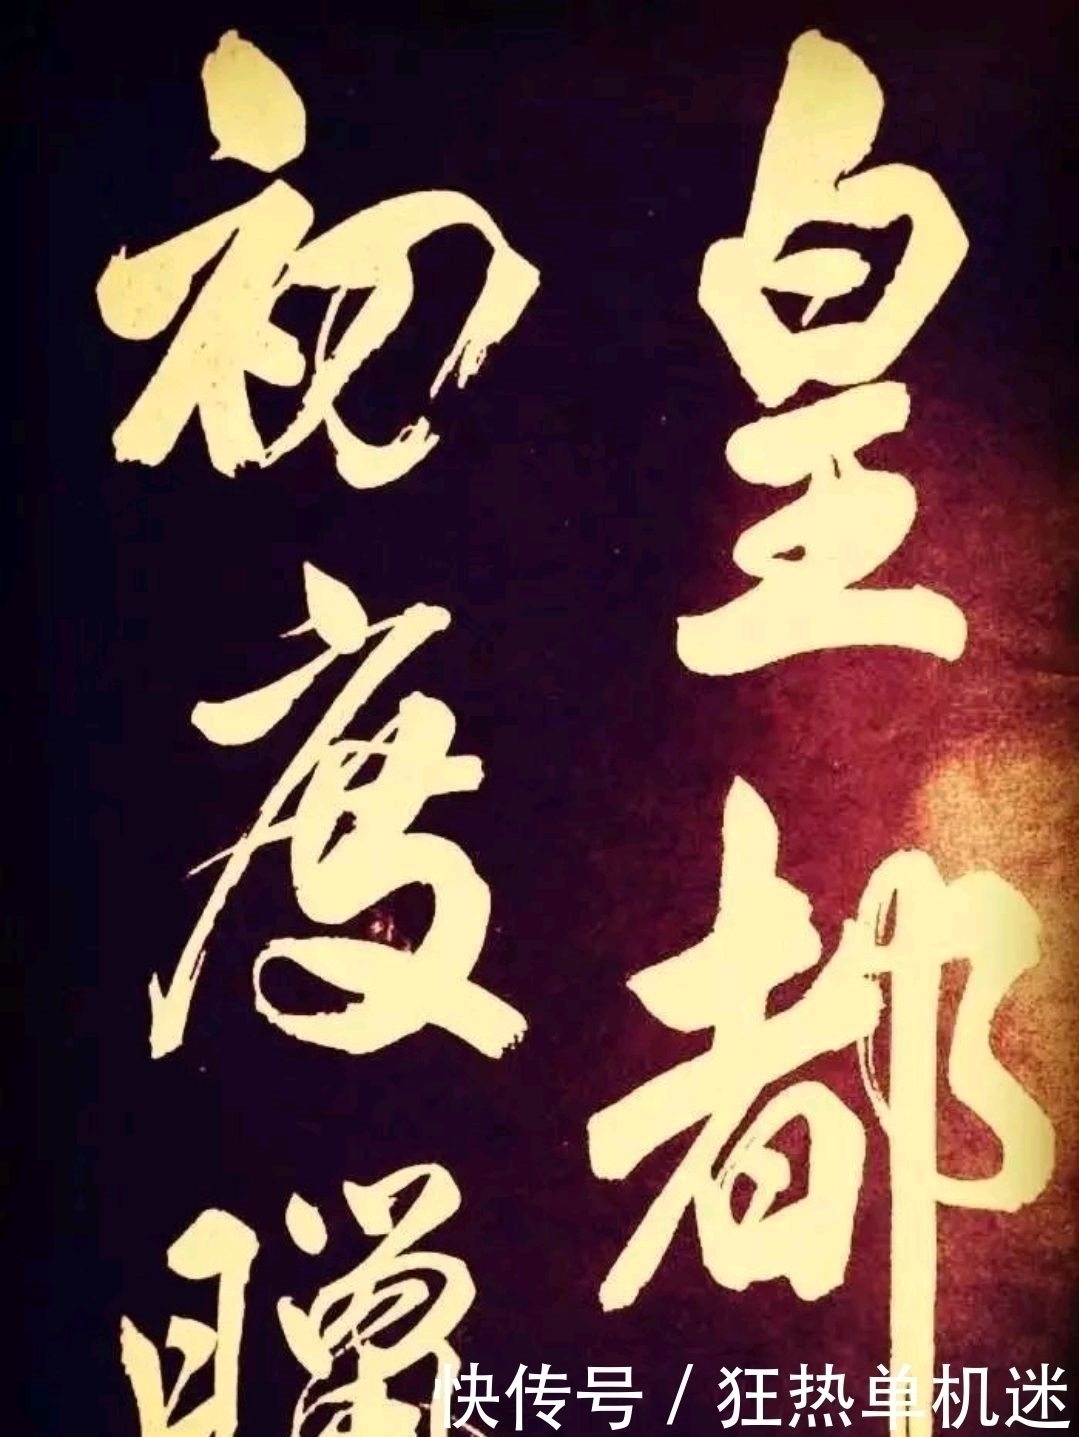 皇都
初度臘
快传号 / 狂热单机迷